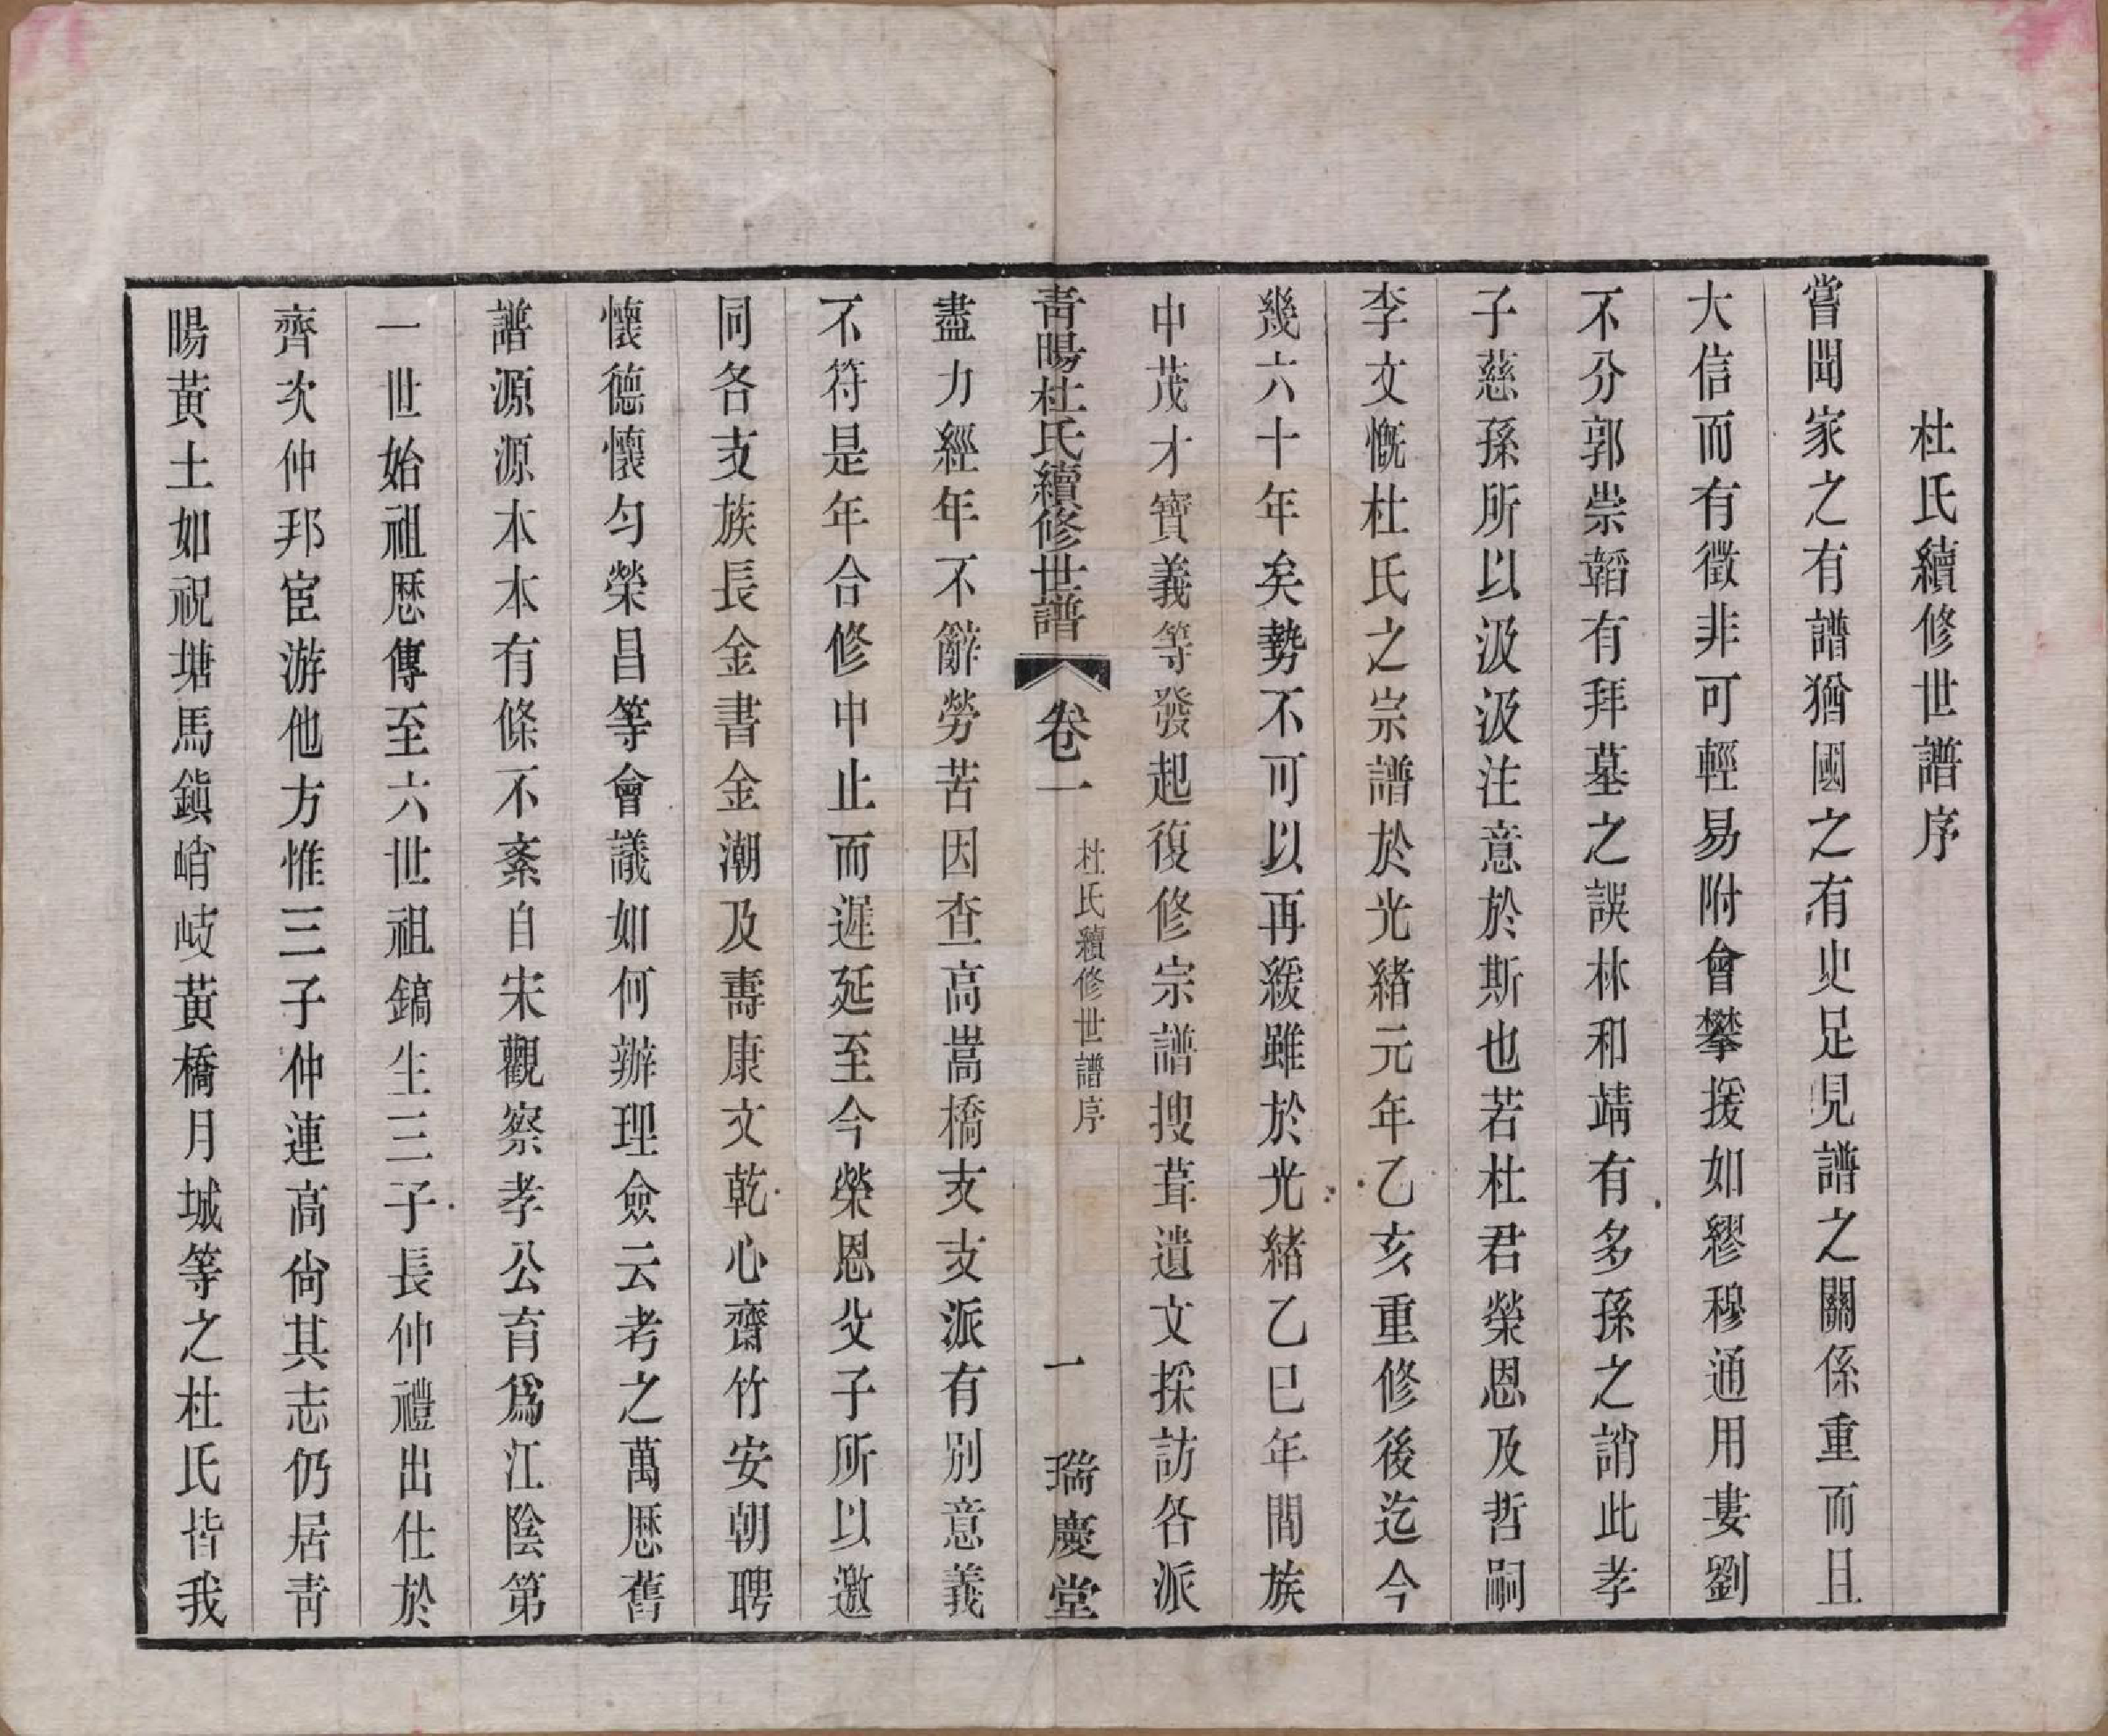 杜氏續修世譜序
嘗聞家之有譜猶國之有史足見譜之關係重而且
大信而有徵非可輕易附會攀援如繆穆通用婁劉
不分郭崇韜有拜墓之誤林和靖有多孫之誚此孝
子慈孫所以汲汲注意於斯也若杜君榮恩及哲嗣
李文慨杜氏之宗譜於光緒元年乙亥重修後迄今
幾六十年矣勢不可以再緩雖於光緒乙巳年間族
中茂才寶義等發起復修宗譜搜葺遺文採訪各派
青暘杜氏續修世譜 卷一 杜氏續修世譜序 一 瑞慶堂
盡力經年不辭勞苦因查高嵩橋支支派有別意義
不符是年合修中止而遲延至今榮恩父子所以邀
同各支族長金書金潮及壽康文乾心齋竹安朝聘
懷德懷勻榮昌等會議如何辦理僉云考之萬曆舊
譜源源本本有條不紊自宋觀察孝公育爲江陰第
一世始祖歷傳至六世祖鎬生三子長仲禮出仕於
齊次仲邦宦游他方惟三子仲連高尙其志仍居青
暘黃土如祝塘馬鎮峭岐黃橋月城等之杜氏皆我